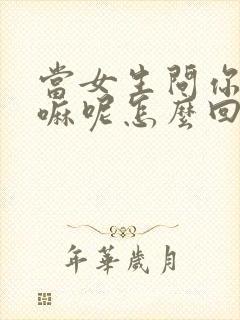 當女生問你
嘛呢怎麼回
年華歲月